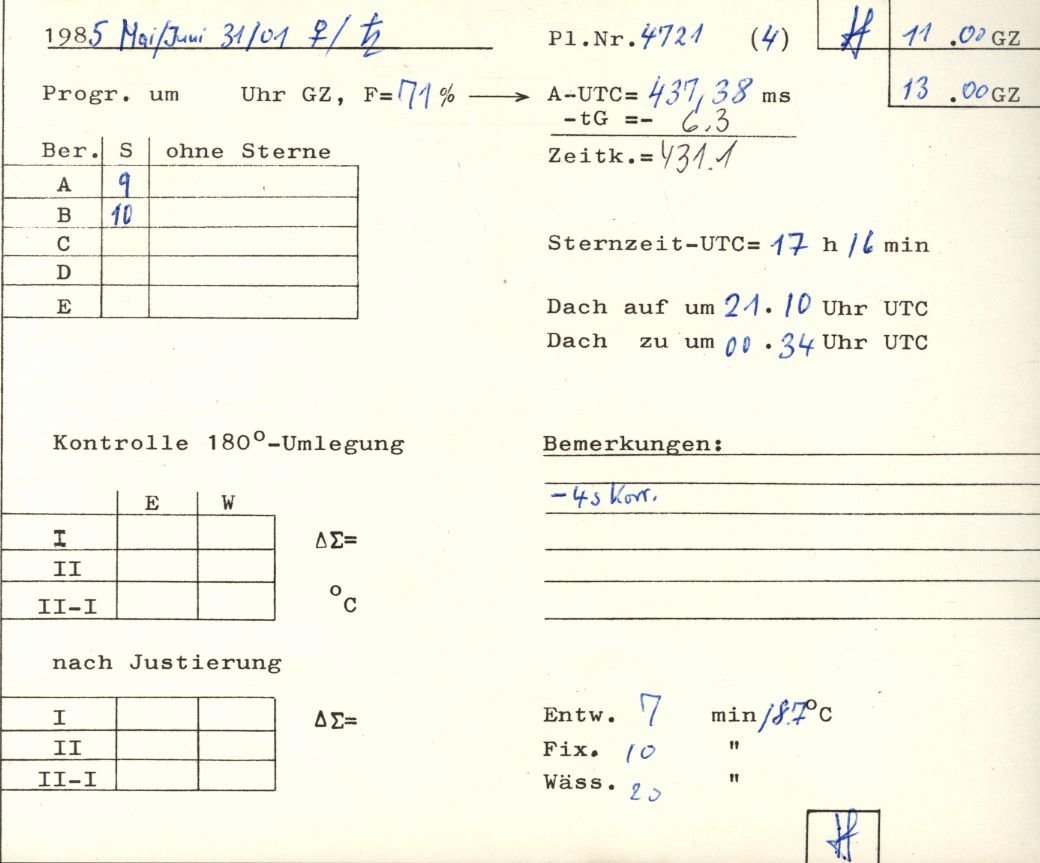 1985 Mai/Juni 31/01 ♀/♄ Pl.Nr.4721 (4) 11.00GZ
Progr. um Uhr GZ, F=71% → A-UTC= 437,38 ms 13.00GZ
-tG =- 6.3
Ber. S ohne Sterne Zeitk.= 431.1
A 9
B 10
C
D
E
Sternzeit-UTC= 17 h 16 min
Dach auf um 21.10 Uhr UTC
Dach zu um 00.34 Uhr UTC
Kontrolle 180°-Umlegung Bemerkungen:
-4s Korr.
E W
I ΔΣ=
II
II-I °C
nach Justierung
I ΔΣ=
II
II-I
Entw. 7 min/18.7°C
Fix. 10 "
Wäss. 20 "